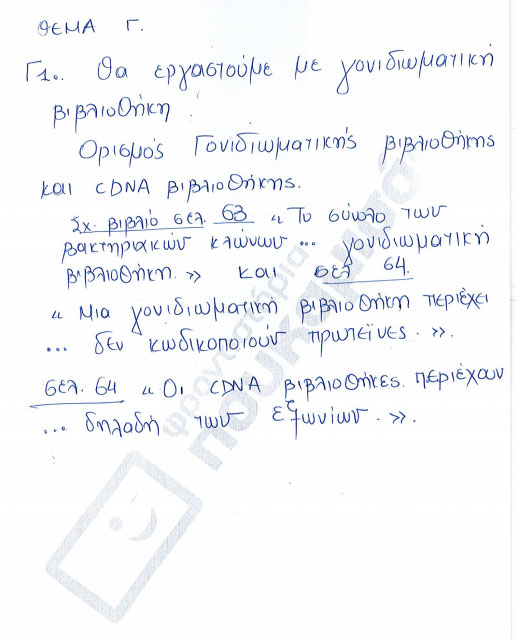 ΘΕΜΑ Γ.
Γ1. Θα εργαστούμε με γονιδιωματική
βιβλιοθήκη.
Ορισμός Γονιδιωματικής βιβλιοθήκης
και CDNA βιβλιοθήκης.
Σχ. βιβλίο σελ. 63 « Το σύνολο των
βακτηριακών κλώνων ... γονιδιωματική
βιβλιοθήκη.» και σελ 64.
« Μια γονιδιωματική βιβλιοθήκη περιέχει
... δεν κωδικοποιούν πρωτεϊνες. ».
σελ. 64 « Οι CDNA βιβλιοθήκες. περιέχουν
... δηλαδή των εξωνίων. ».
φροντιστήρια
πουκαμισάς